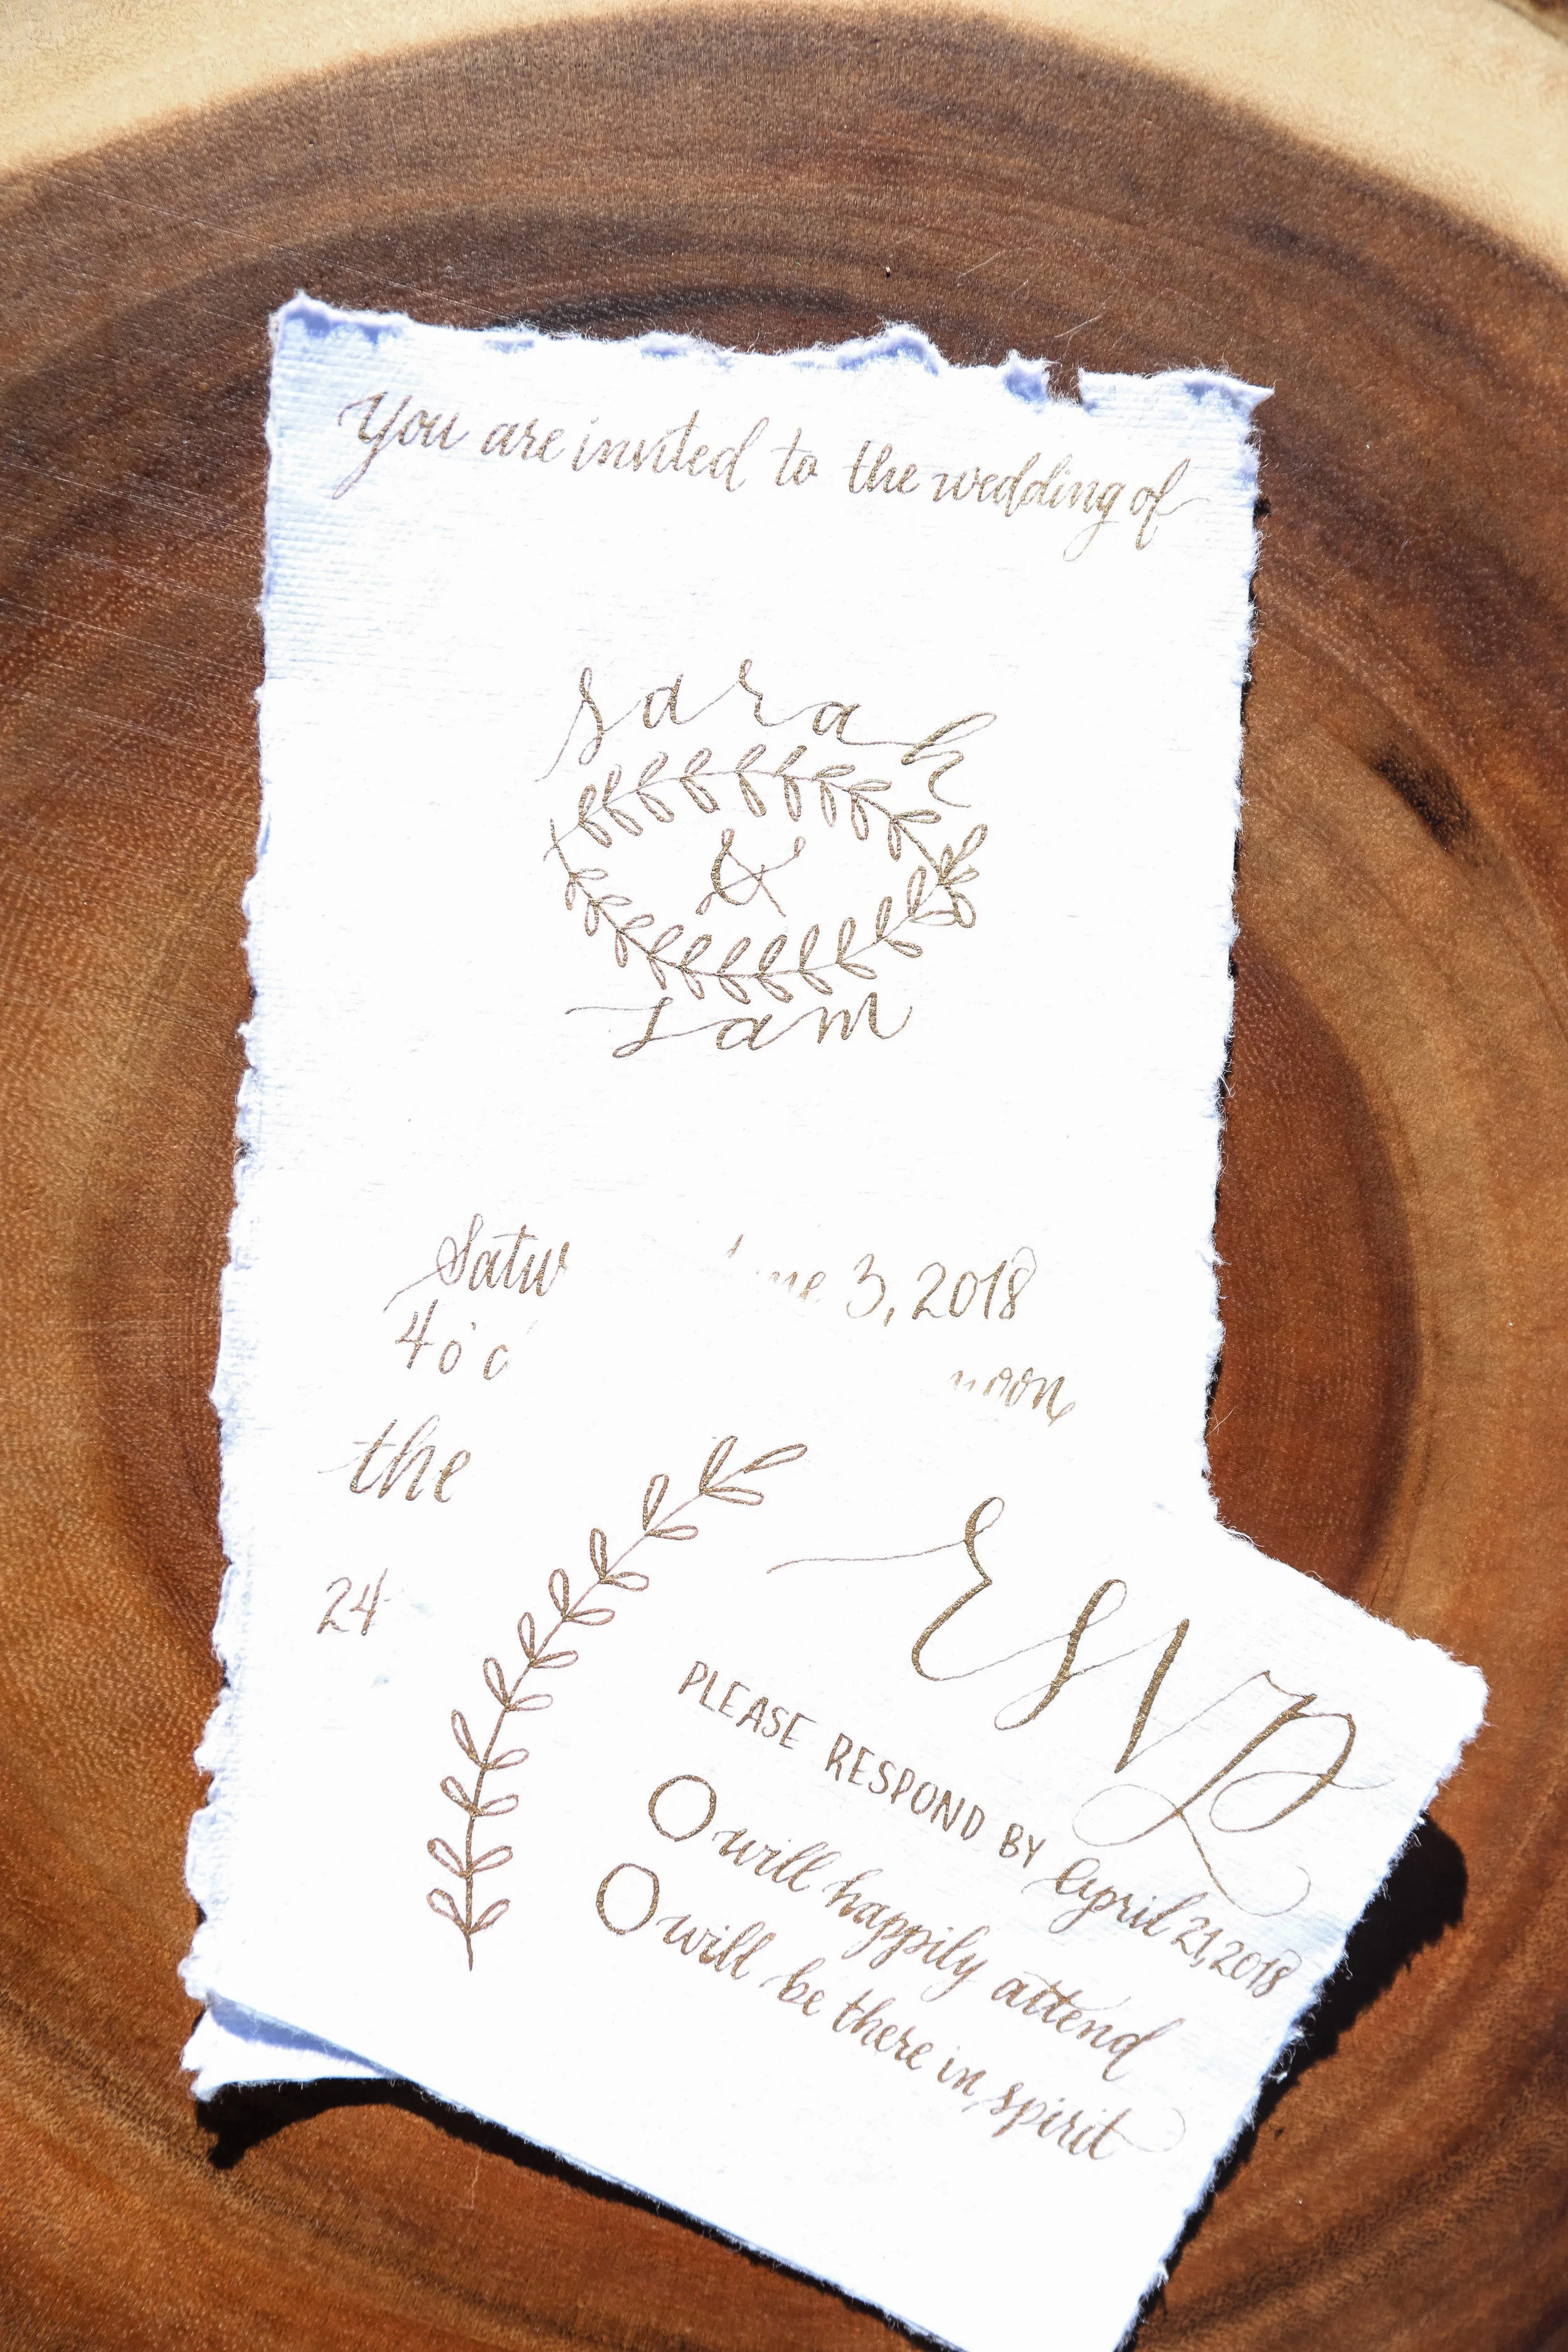 You are invited to the wedding of
sarah
&
sam
3, 2018
4 o'c
the
24
RSVP
PLEASE RESPOND BY April 21, 2018
will happily attend
will be there in spirit